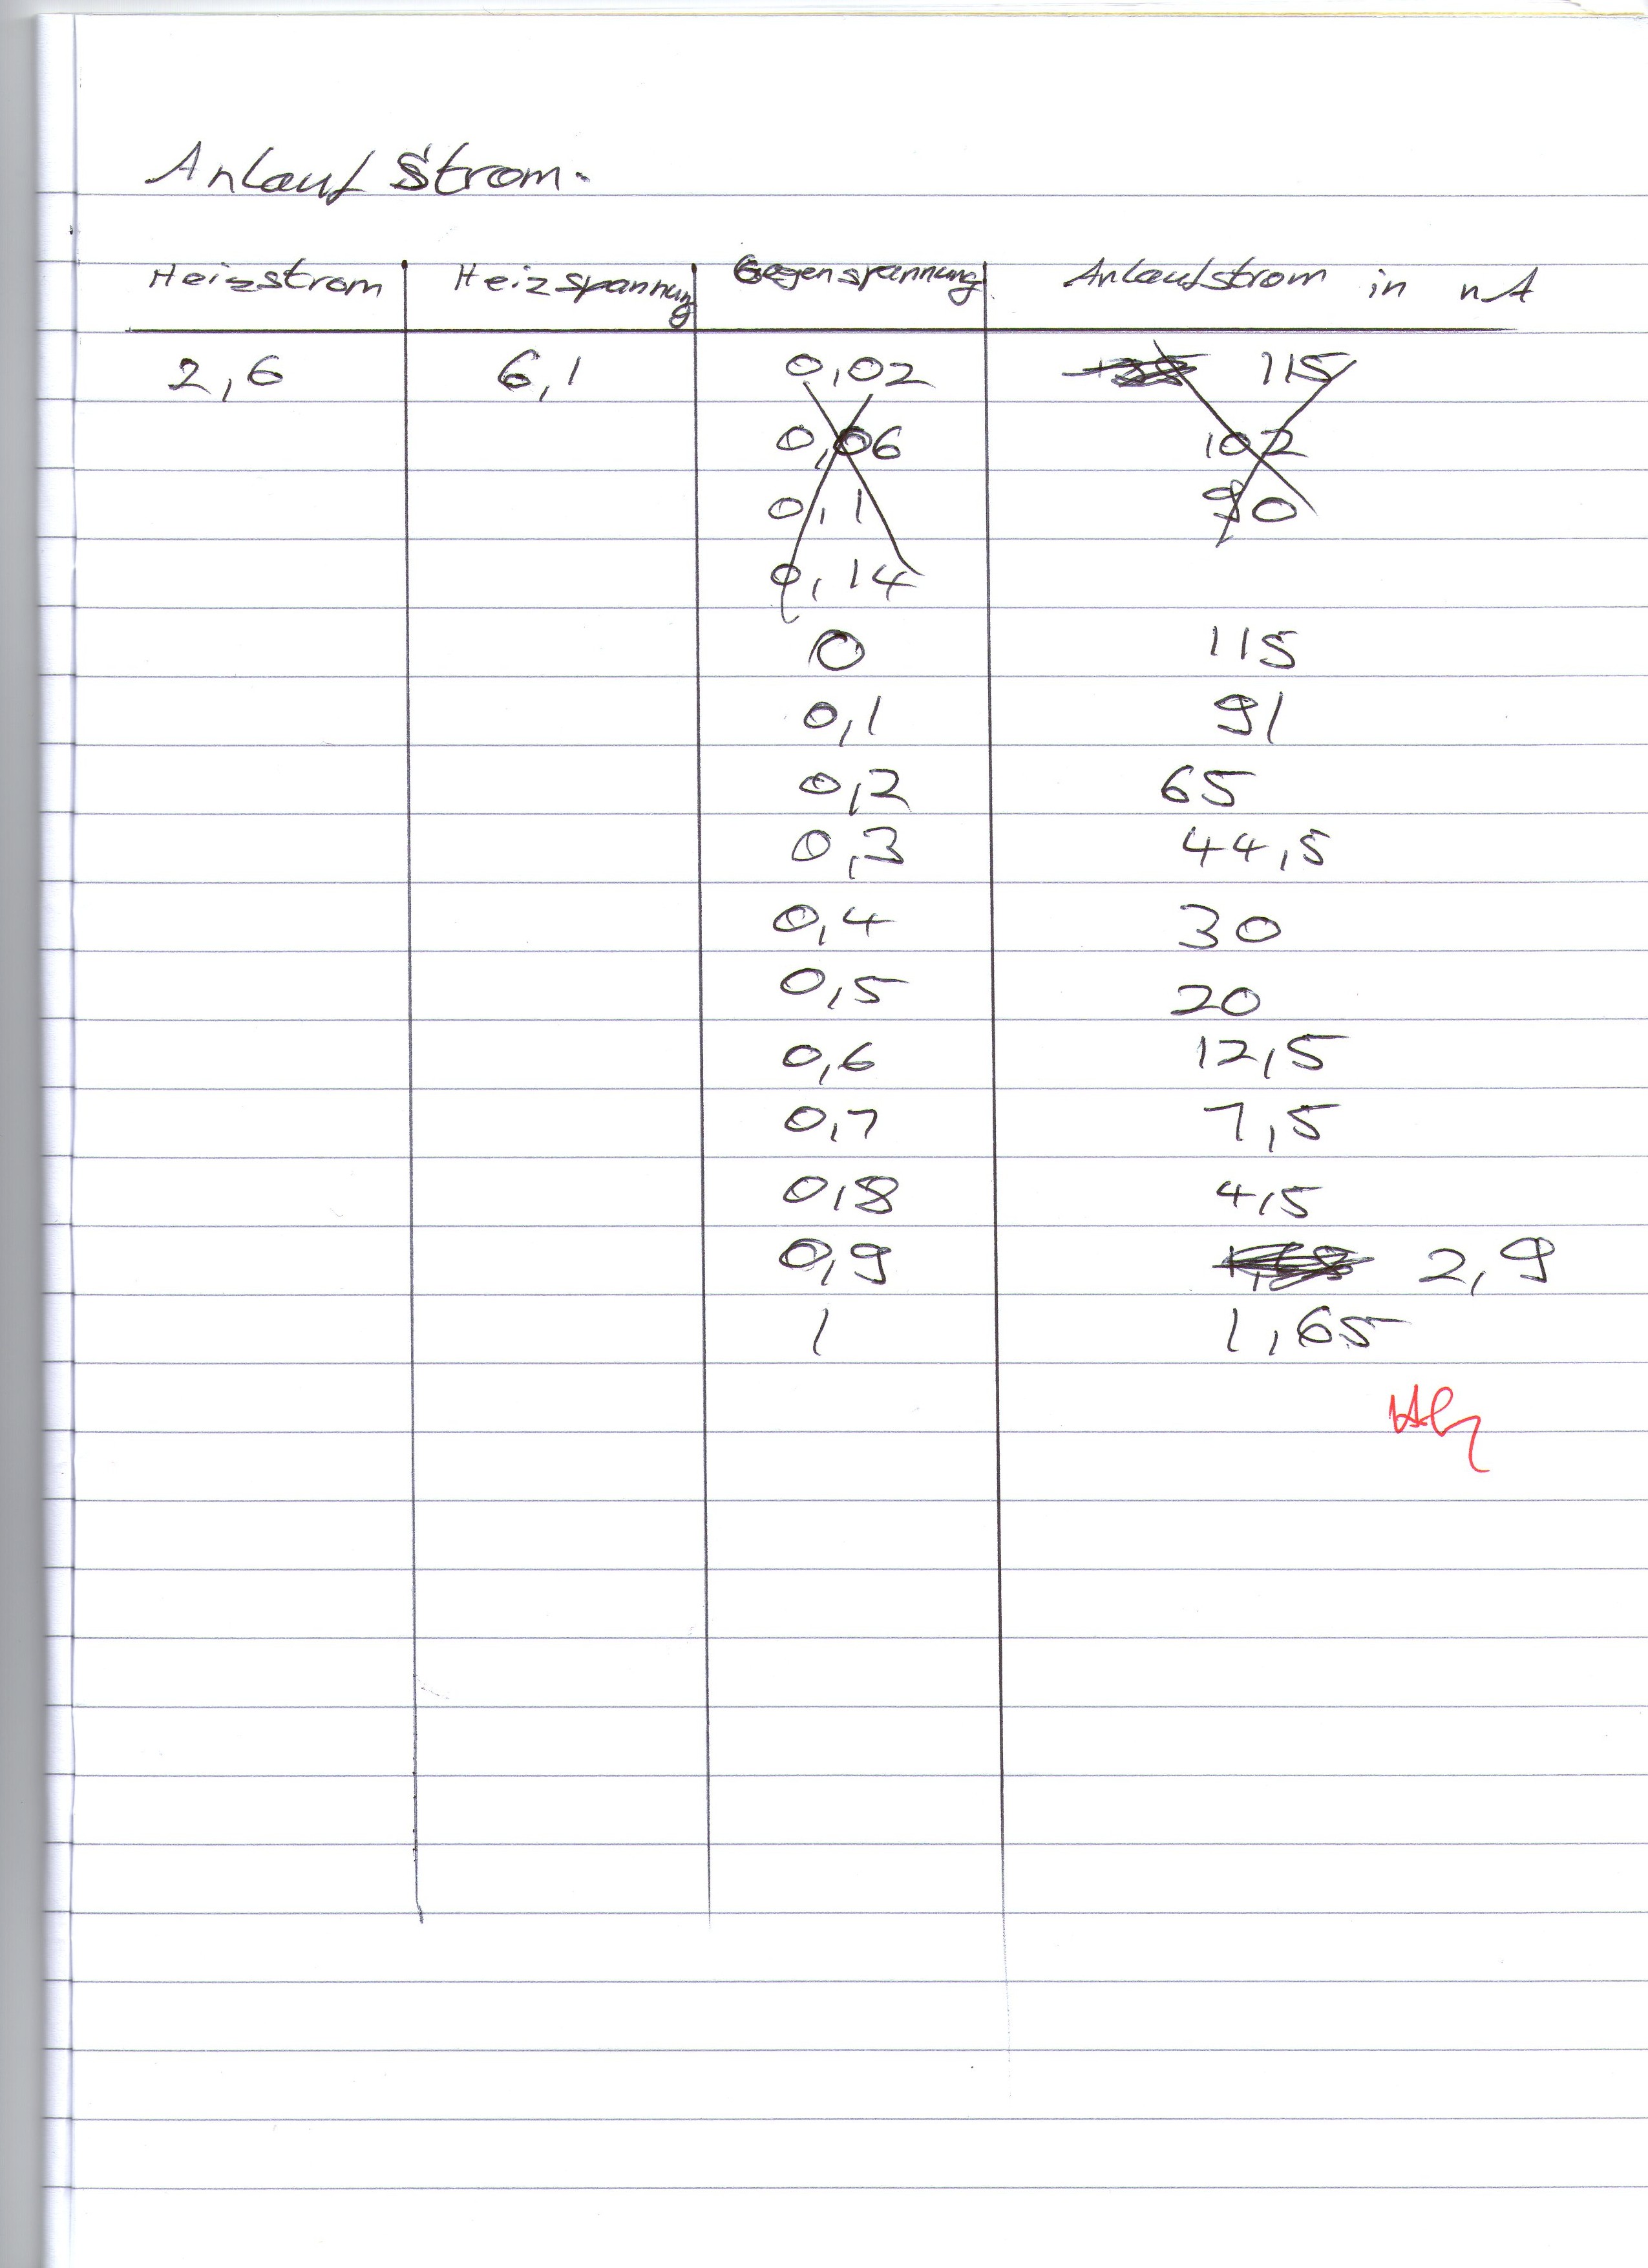 Anlauf Strom.
Heizstrom Heizspannung Gegenspannung Anlaufstrom in nA
2,6 6,1 0,02 115
0,06 102
0,1 90
0,14
0 115
0,1 91
0,2 65
0,3 44,5
0,4 30
0,5 20
0,6 12,5
0,7 7,5
0,8 4,5
0,9 2,9
1 1,65